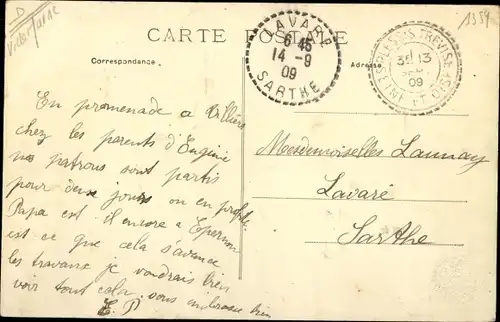 D
Villiers s/ Marne
1384
CARTE POSTALE
Correspondance.
Adresse
LAVARÉ
6 45
14 - 9
09
SARTHE
PLESSIS-TREVISE
3E 13
09
SEINE ET OISE
En promenade a Villiers
chez les parents d'Eugénie
nos patrons sont partis
pour deux jours on en profite
Papa est-il encore a Epernon
est-ce que cela s'avance
les travaux je voudrais bien
voir tout cela. vous embrasse bien
E. P.
Mesdemoiselles Launay
Lavaré
Sarthe